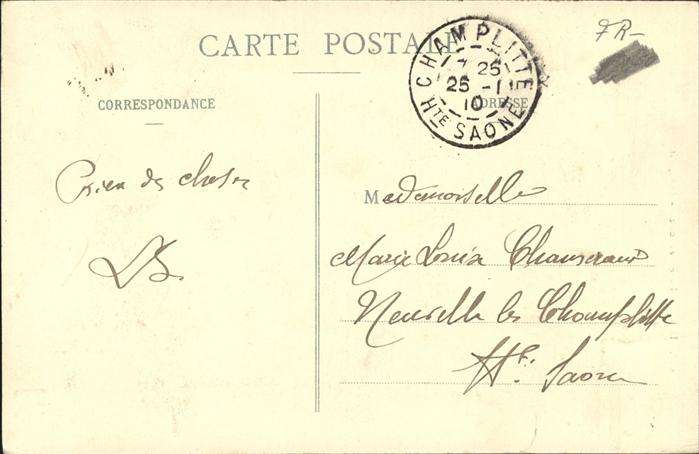 CARTE POSTALE
7 R-
CHAMPLITTE
25
25 -1
10
HTE SAONE
CORRESPONDANCE
ADRESSE
Rien de
Mademoiselle
Marie Louise
Neuvelle les Champlitte
Hte Saone